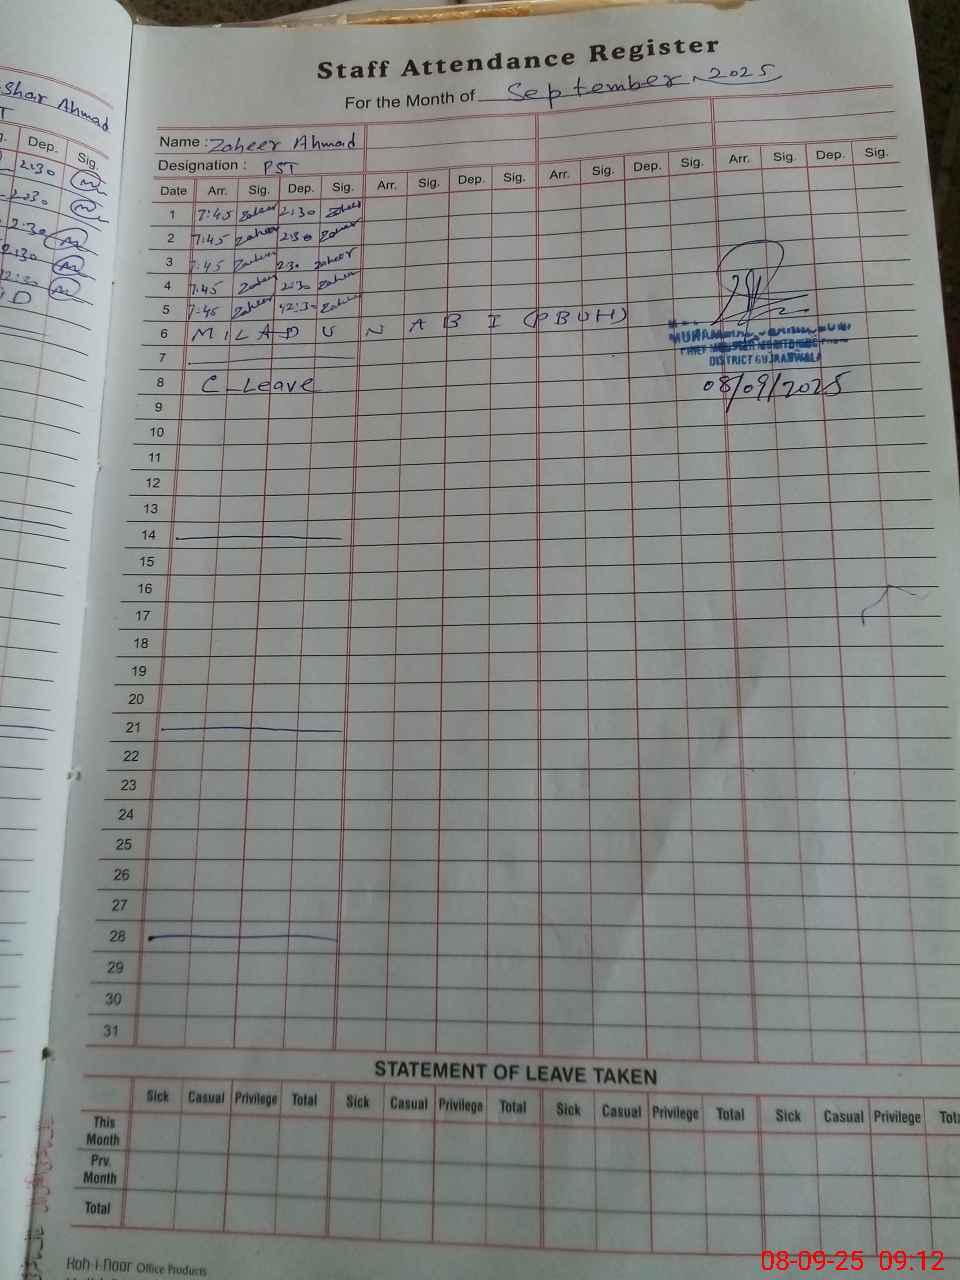 shar Ahmad
Dep. Sig.
2:30
2:30
2:30
2:30
12:30
Staff Attendance Register
For the Month of September, 2025
Name : Zaheer Ahmad
Designation : PST
Date Arr. Sig. Dep. Sig. Arr. Sig. Dep. Sig. Arr. Sig. Dep. Sig. Arr. Sig. Dep. Sig.
1 7:45 Zaheer 2:30 Zaheer
2 7:45 Zaheer 2:30 Zaheer
3 7:45 Zaheer 2:30 Zaheer
4 7:45 Zaheer 2:30 Zaheer
5 7:45 Zaheer 12:30 Zaheer
6 MILAD U NABI (PBUH)
7
8 C-Leave
DISTRICT GUJRANWALA
08/09/2025
9
10
11
12
13
14
15
16
17
18
19
20
21
22
23
24
25
26
27
28
29
30
31
STATEMENT OF LEAVE TAKEN
Sick Casual Privilege Total Sick Casual Privilege Total Sick Casual Privilege Total Sick Casual Privilege Tota
This Month
Prv. Month
Total
Koh-i-noor Office Products
08-09-25 09:12